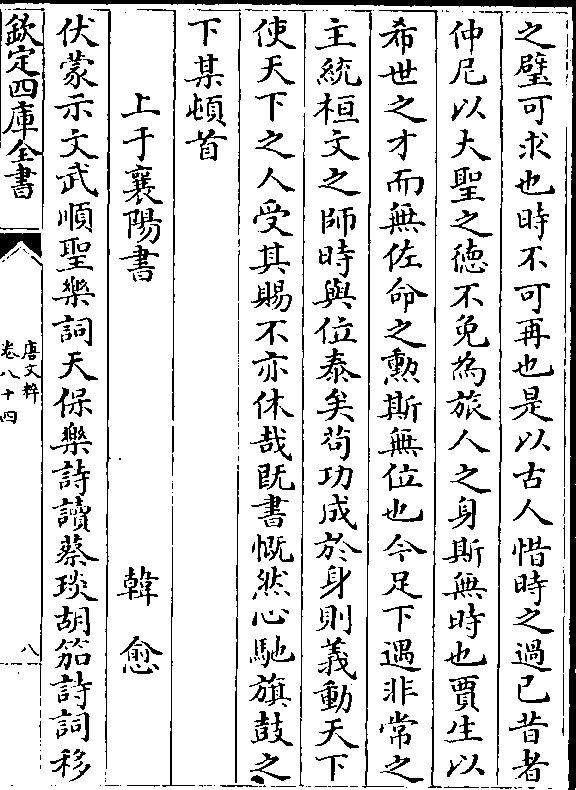 之璧可求也時不可再也是以古人惜時之過已昔者
仲尼以大聖之徳不免為旅人之身斯無時也賈生以
希世之才而無佐命之勲斯無位也今足下遇非常之
主統桓文之師時與位泰矣茍功成於身則義動天下
使天下之人受其賜不亦休哉既書慨然心馳旗鼓之
下某頓首
上于襄陽書 韓愈
伏蒙示文武順聖樂詞天保樂詩讀蔡琰胡笳詩詞移
欽定四庫全書
唐文粹
卷八十四
八